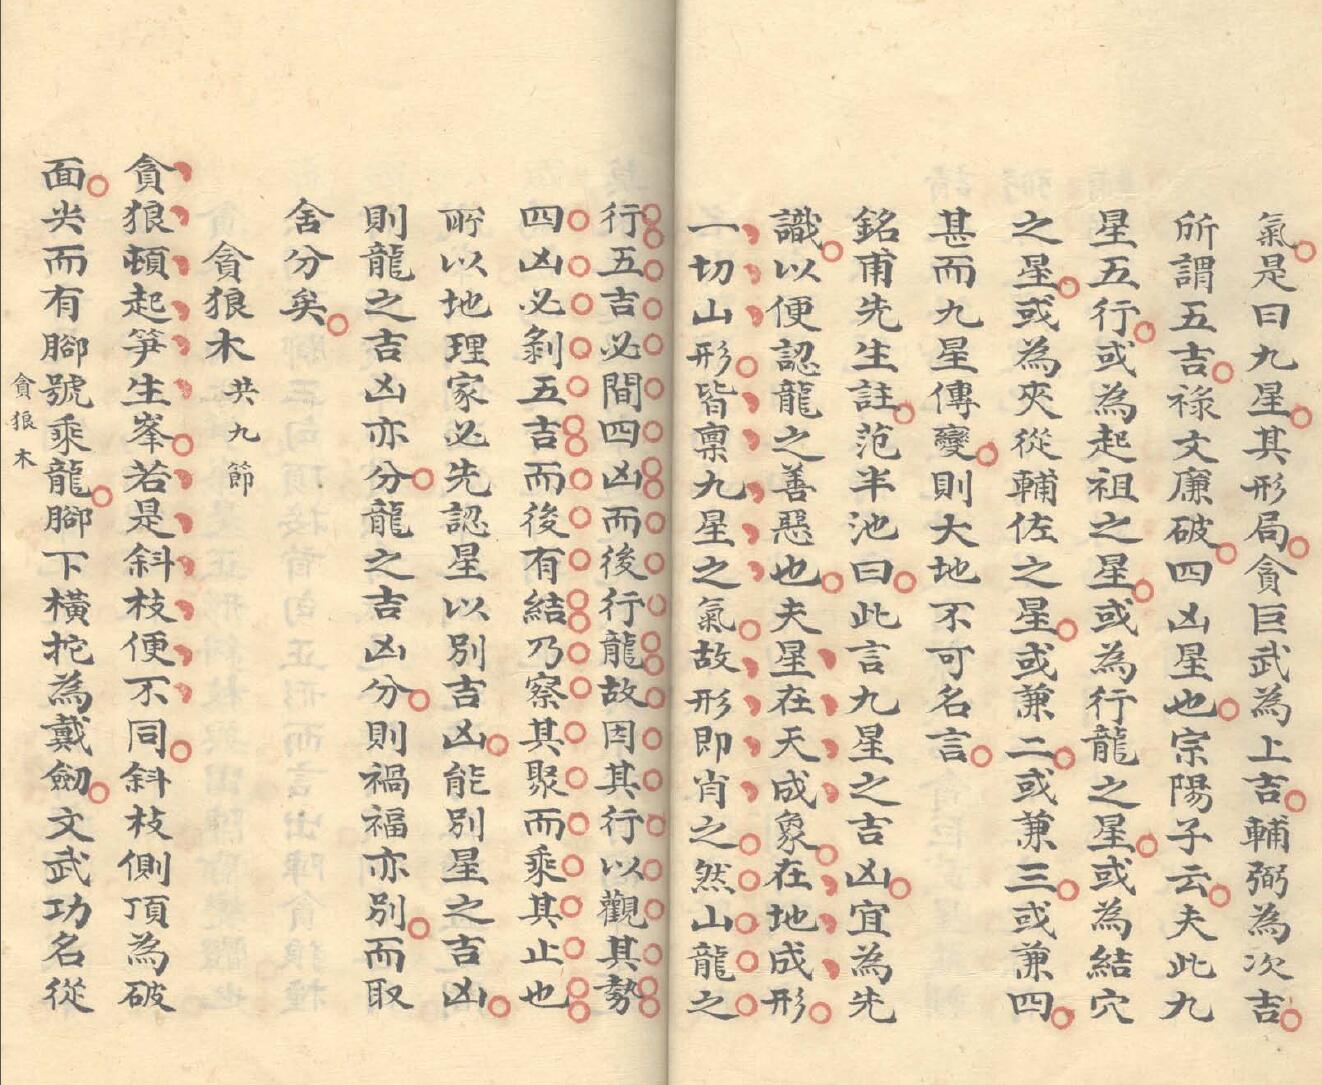 氣是曰九星其形局貪巨武為上吉輔弼為次吉
所謂五吉祿文廉破四凶星也宗陽子云夫此九
星五行或為起祖之星或為行龍之星或為結穴
之星或為夾從輔佐之星或兼二或兼三或兼四
甚而九星傳變則大地不可名言
銘甫先生註范半池曰此言九星之吉凶宜為先
識以便認龍之善惡也夫星在天成象在地成形
一切山形皆禀九星之氣故形即肖之然山龍之
行五吉必間四凶而後行龍故因其行以觀其勢
四凶必剝五吉而後有結乃察其聚而乘其止也
所以地理家必先認星以別吉凶能別星之吉凶
則龍之吉凶亦分龍之吉凶分則禍福亦別而取
舍分矣
貪狼木共九節
貪狼頓起笋生峯若是斜枝便不同斜枝側頂為破
面尖而有腳號乘龍腳下橫拕為戴劒文武功名從
貪狼木